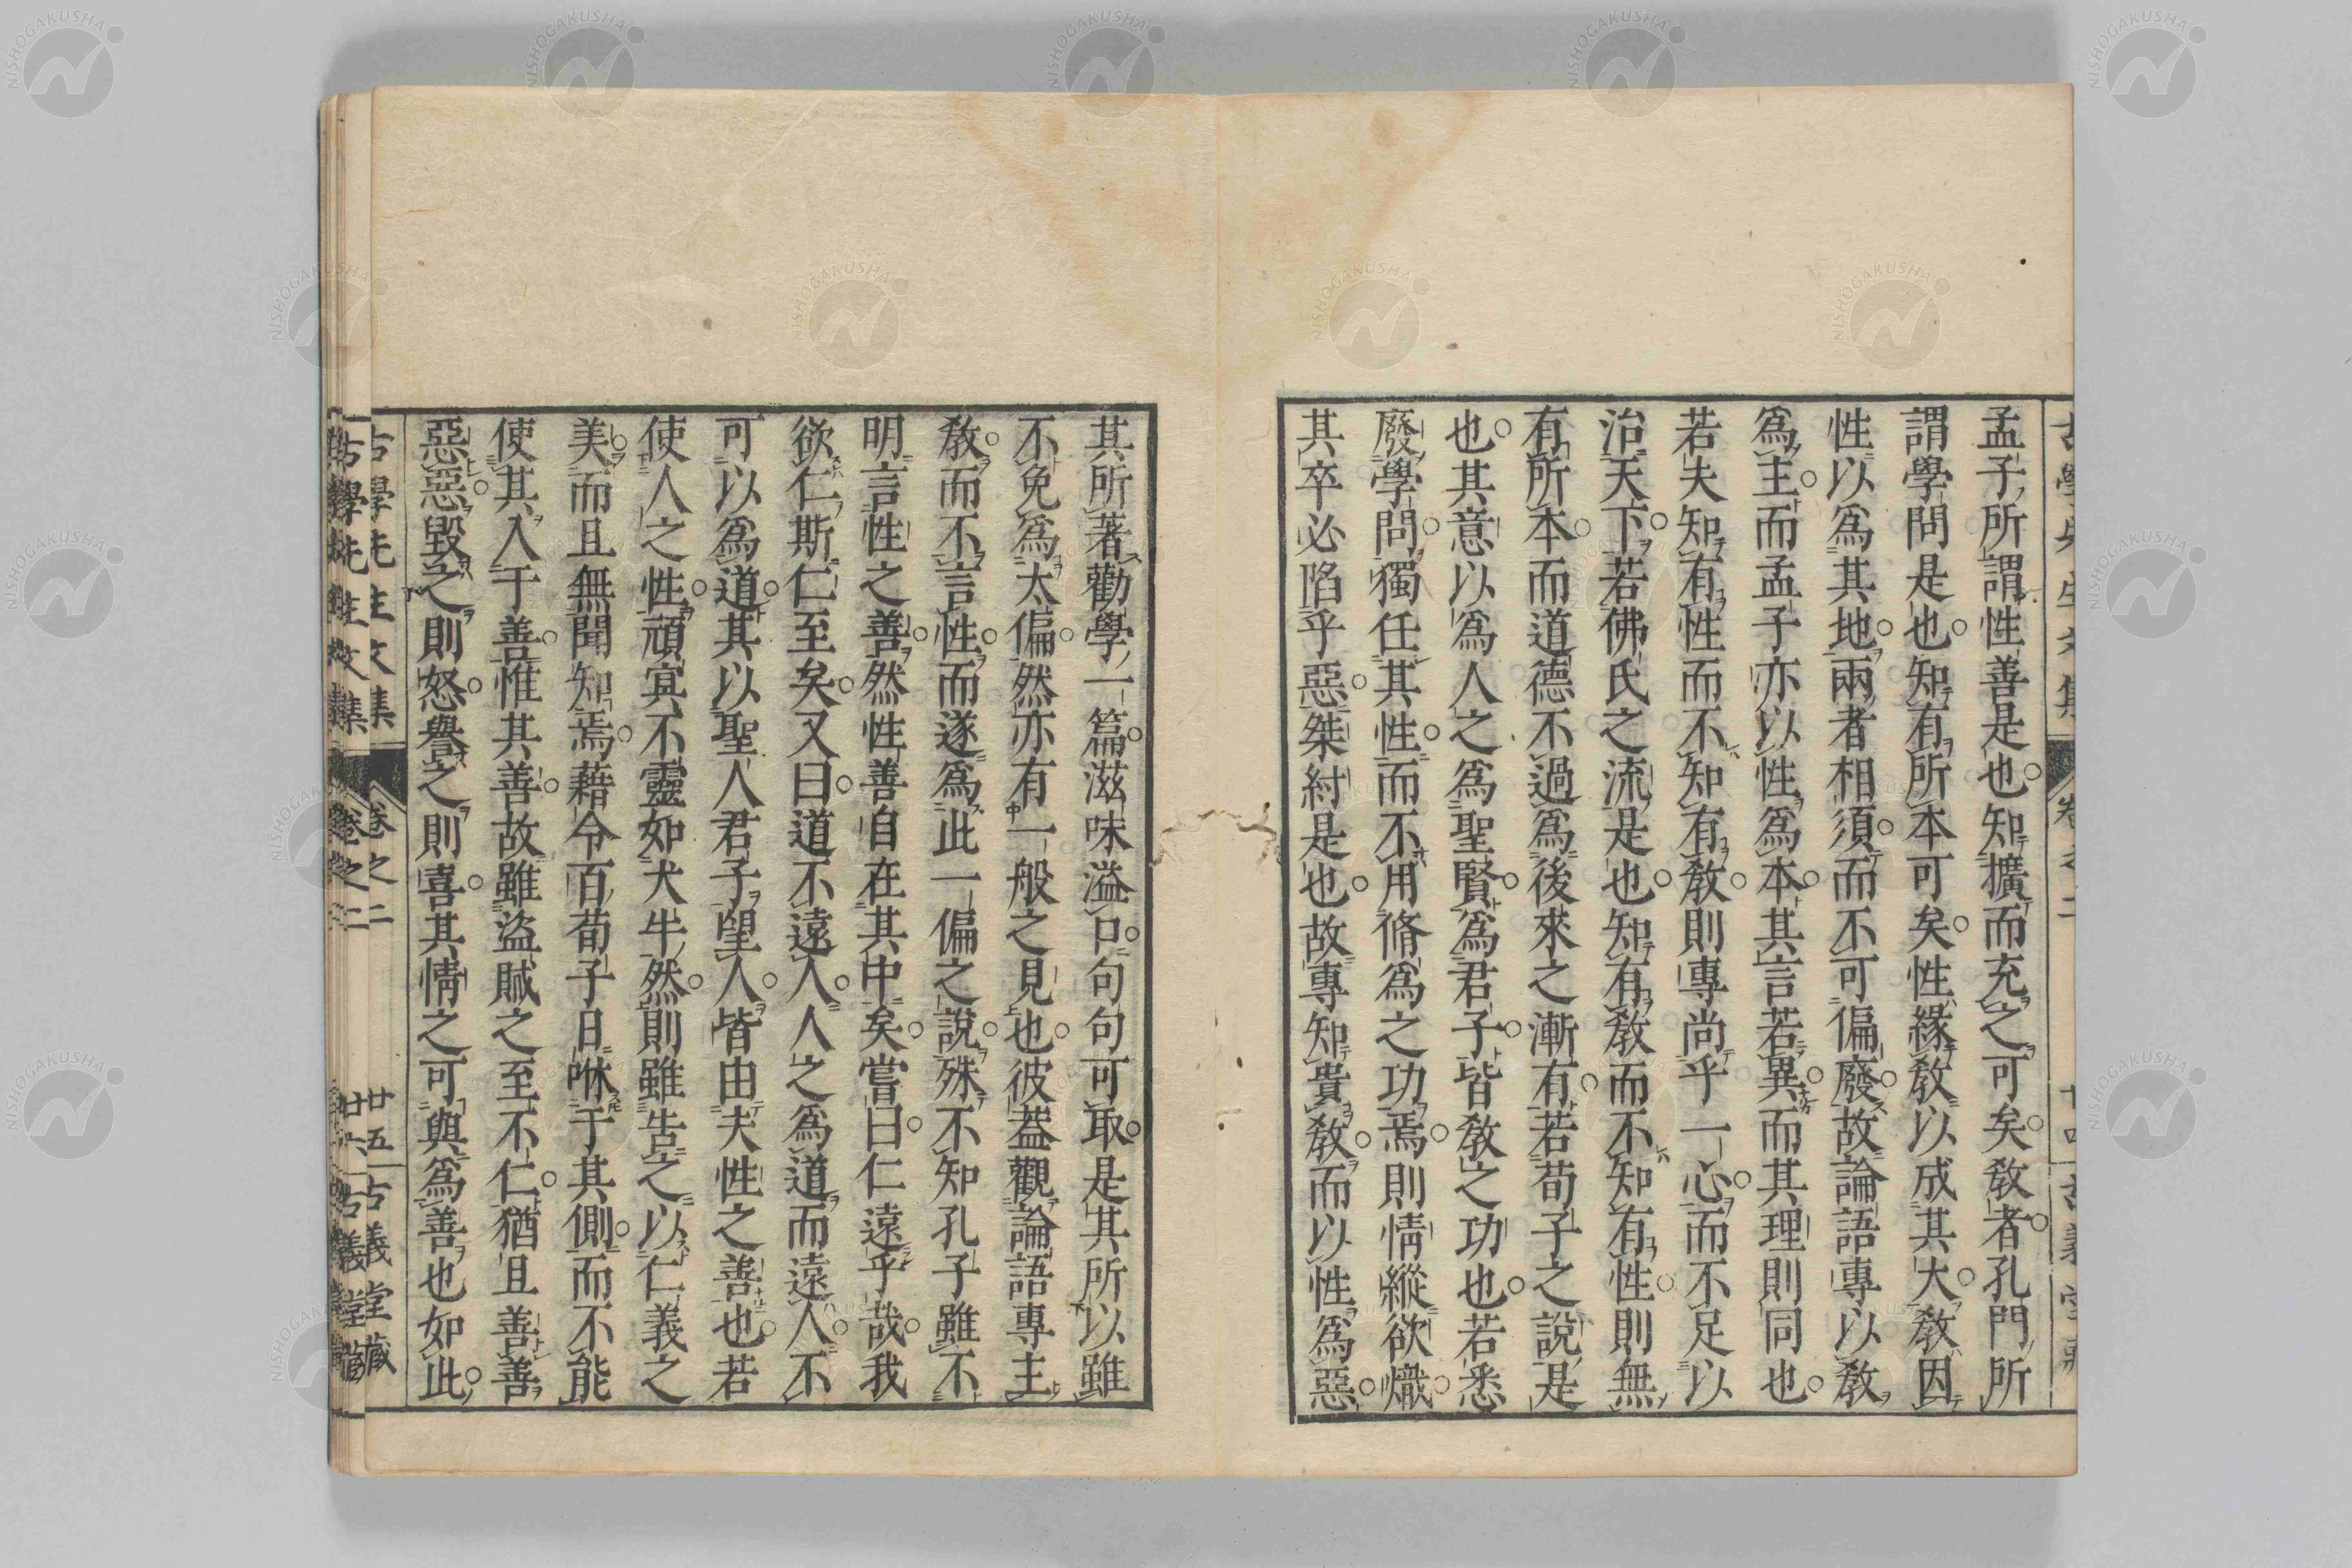 孟子所謂性善是也知擴而充之可矣敎者孔門所
謂學問是也知有所本可矣性緣敎以成其大敎因
性以爲其地兩者相須而不可偏廢故論語專以敎
爲主而孟子亦以性爲本其言若異而其理則同也
若夫知有性而不知有敎則專尚乎一心而不足以
治天下若佛氏之流是也知有敎而不知有性則無
有所本而道德不過爲後來之漸有若荀子之說是
也其意以爲人之爲聖賢爲君子皆敎之功也若悉
廢學問獨任其性而不用脩爲之功焉則情縱欲熾
其卒必陷乎惡桀紂是也故專知貴敎而以性爲惡
其所著勸學一篇滋味溢口句句可取是其所以雖
不免爲太偏然亦有一般之見也彼蓋觀論語專主
敎而不言性而遂爲此一偏之說殊不知孔子雖不
明言性之善然性善自在其中矣嘗曰仁遠乎哉我
欲仁斯仁至矣又曰道不遠人人之爲道而遠人不
可以爲道其以聖人君子望人皆由夫性之善也若
使人之性頑冥不靈如犬牛然則雖告之以仁義之
美而且無聞知焉藉令百荀子日咻于其側而不能
使其入于善惟其善故雖盜賊之至不仁猶且善善
惡惡毀之則怒譽之則喜其情之可與爲善也如此
古學先生文集 卷之二 廿五 古義堂藏